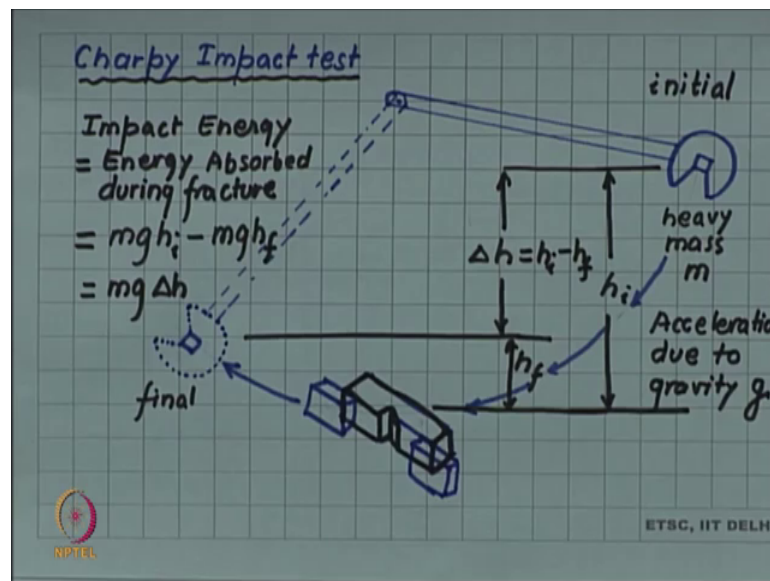 Charpy Impact test
Impact Energy
= Energy Absorbed
during fracture
= mgh_i - mgh_f
= mg Δh
initial
heavy
mass
m
Δh = h_i - h_f
h_i
h_f
Acceleratio
due to
gravity g
final
NPTEL
ETSC, IIT DELH